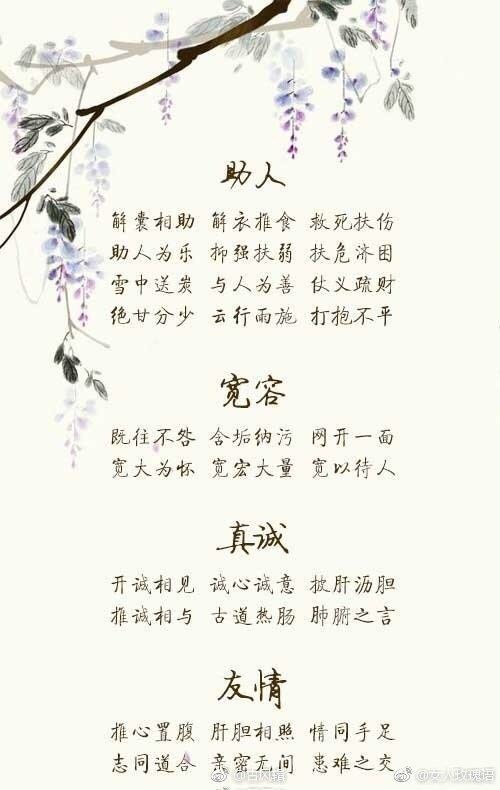 助人
解囊相助 解衣推食 救死扶伤
助人为乐 抑强扶弱 扶危济困
雪中送炭 与人为善 仗义疏财
绝甘分少 云行雨施 打抱不平
宽容
既往不咎 含垢纳污 网开一面
宽大为怀 宽宏大量 宽以待人
真诚
开诚相见 诚心诚意 披肝沥胆
推诚相与 古道热肠 肺腑之言
友情
推心置腹 肝胆相照 情同手足
志同道合 亲密无间 患难之交
@古风辑 @女人玫瑰语